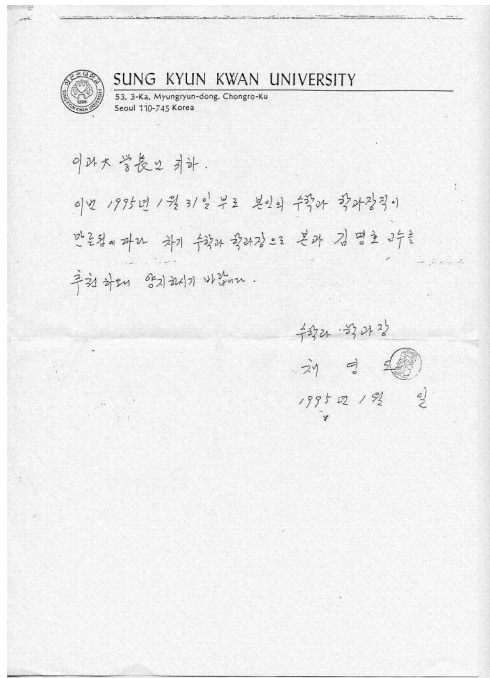 SUNG KYUN KWAN UNIVERSITY
53, 3-Ka, Myungryun-dong, Chongro-Ku
Seoul 110-745 Korea
이과大 学長님 귀하.
이번 1995년 1월 31일 부로 본인의 수학과 학과장직이
만료됨에 따라 차기 수학과 학과장으로 본과 김명호 교수를
추천하오니 양지하시기 바랍니다.
수학과 학과장
채 영 도
1995년 1월 일